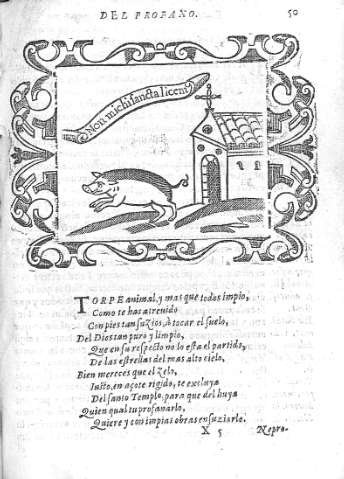 DEL PROFANO. 50
Non michi sancta licent
TORPE animal, y mas que todos impio,
Como te has atreuido
Con pies tan suzios, à tocar el suelo,
Del Dios tan puro y limpio,
Que en su respecto no lo es a el partido,
De las estrellas del mas alto cielo,
Bien mereces que el zelo,
Iusto, en açote rigido, te excluya
Del santo Templo, para que del huya
Quien qual tu profanarlo,
Quiere y con impias obras ensuziarle.
X 5 Repro-